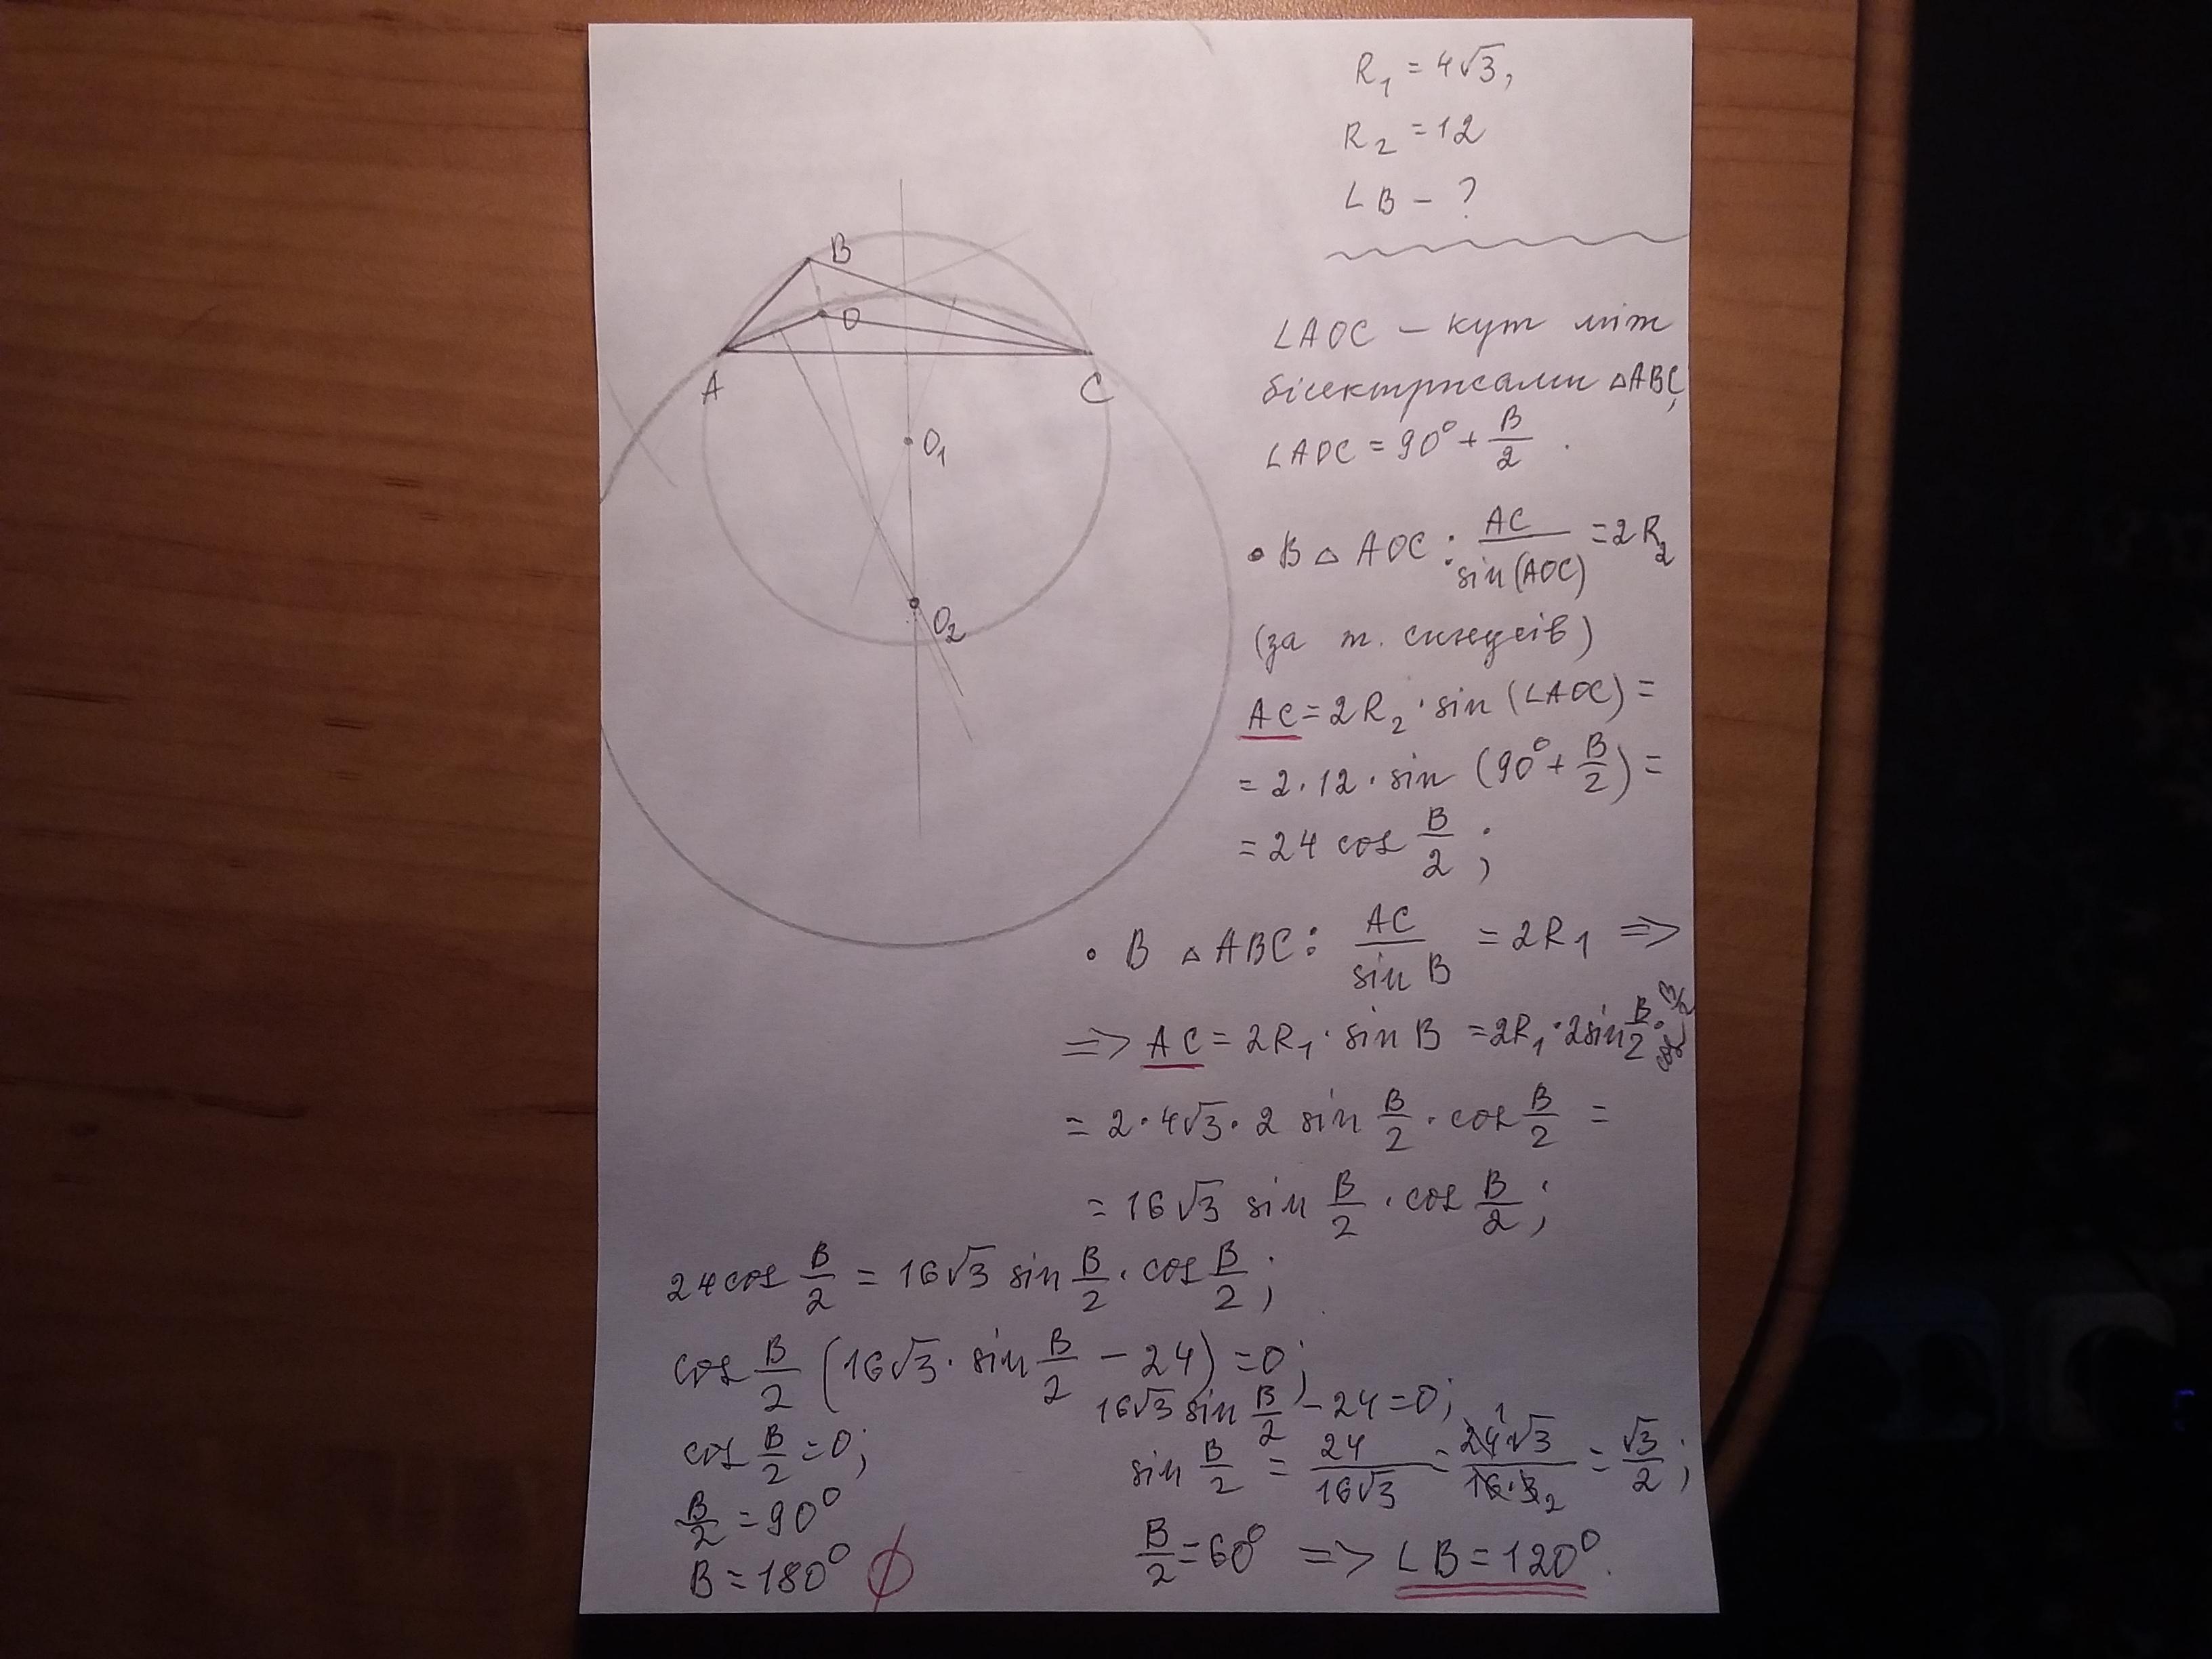 R₁ = 4√3,
R₂ = 12
∠B – ?
B
O
A
C
O₁
O₂
∠AOC – кут між
бісектрисами △ABC,
∠AOC = 90° + B/2.
• В △ AOC: AC/sin(AOC) = 2R₂
(за т. синусів)
AC = 2R₂ · sin (∠AOC) =
= 2 · 12 · sin (90° + B/2) =
= 24 cos B/2;
• В △ ABC: AC/sin B = 2R₁ =>
=> AC = 2R₁ · sin B = 2R₁ · 2sin B/2 · cos B/2
= 2 · 4√3 · 2 sin B/2 · cos B/2 =
= 16√3 sin B/2 · cos B/2;
24cos B/2 = 16√3 sin B/2 · cos B/2;
cos B/2 (16√3 · sin B/2 – 24) = 0;
cos B/2 = 0;
B/2 = 90°
B = 180° ∅
16√3 sin B/2 – 24 = 0;
sin B/2 = 24/16√3 = 24√3/16·3 = √3/2;
B/2 = 60° => ∠B = 120°.